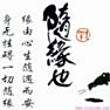 隨緣也
緣由心生隨遇而安
身无挂碍一切隨緣